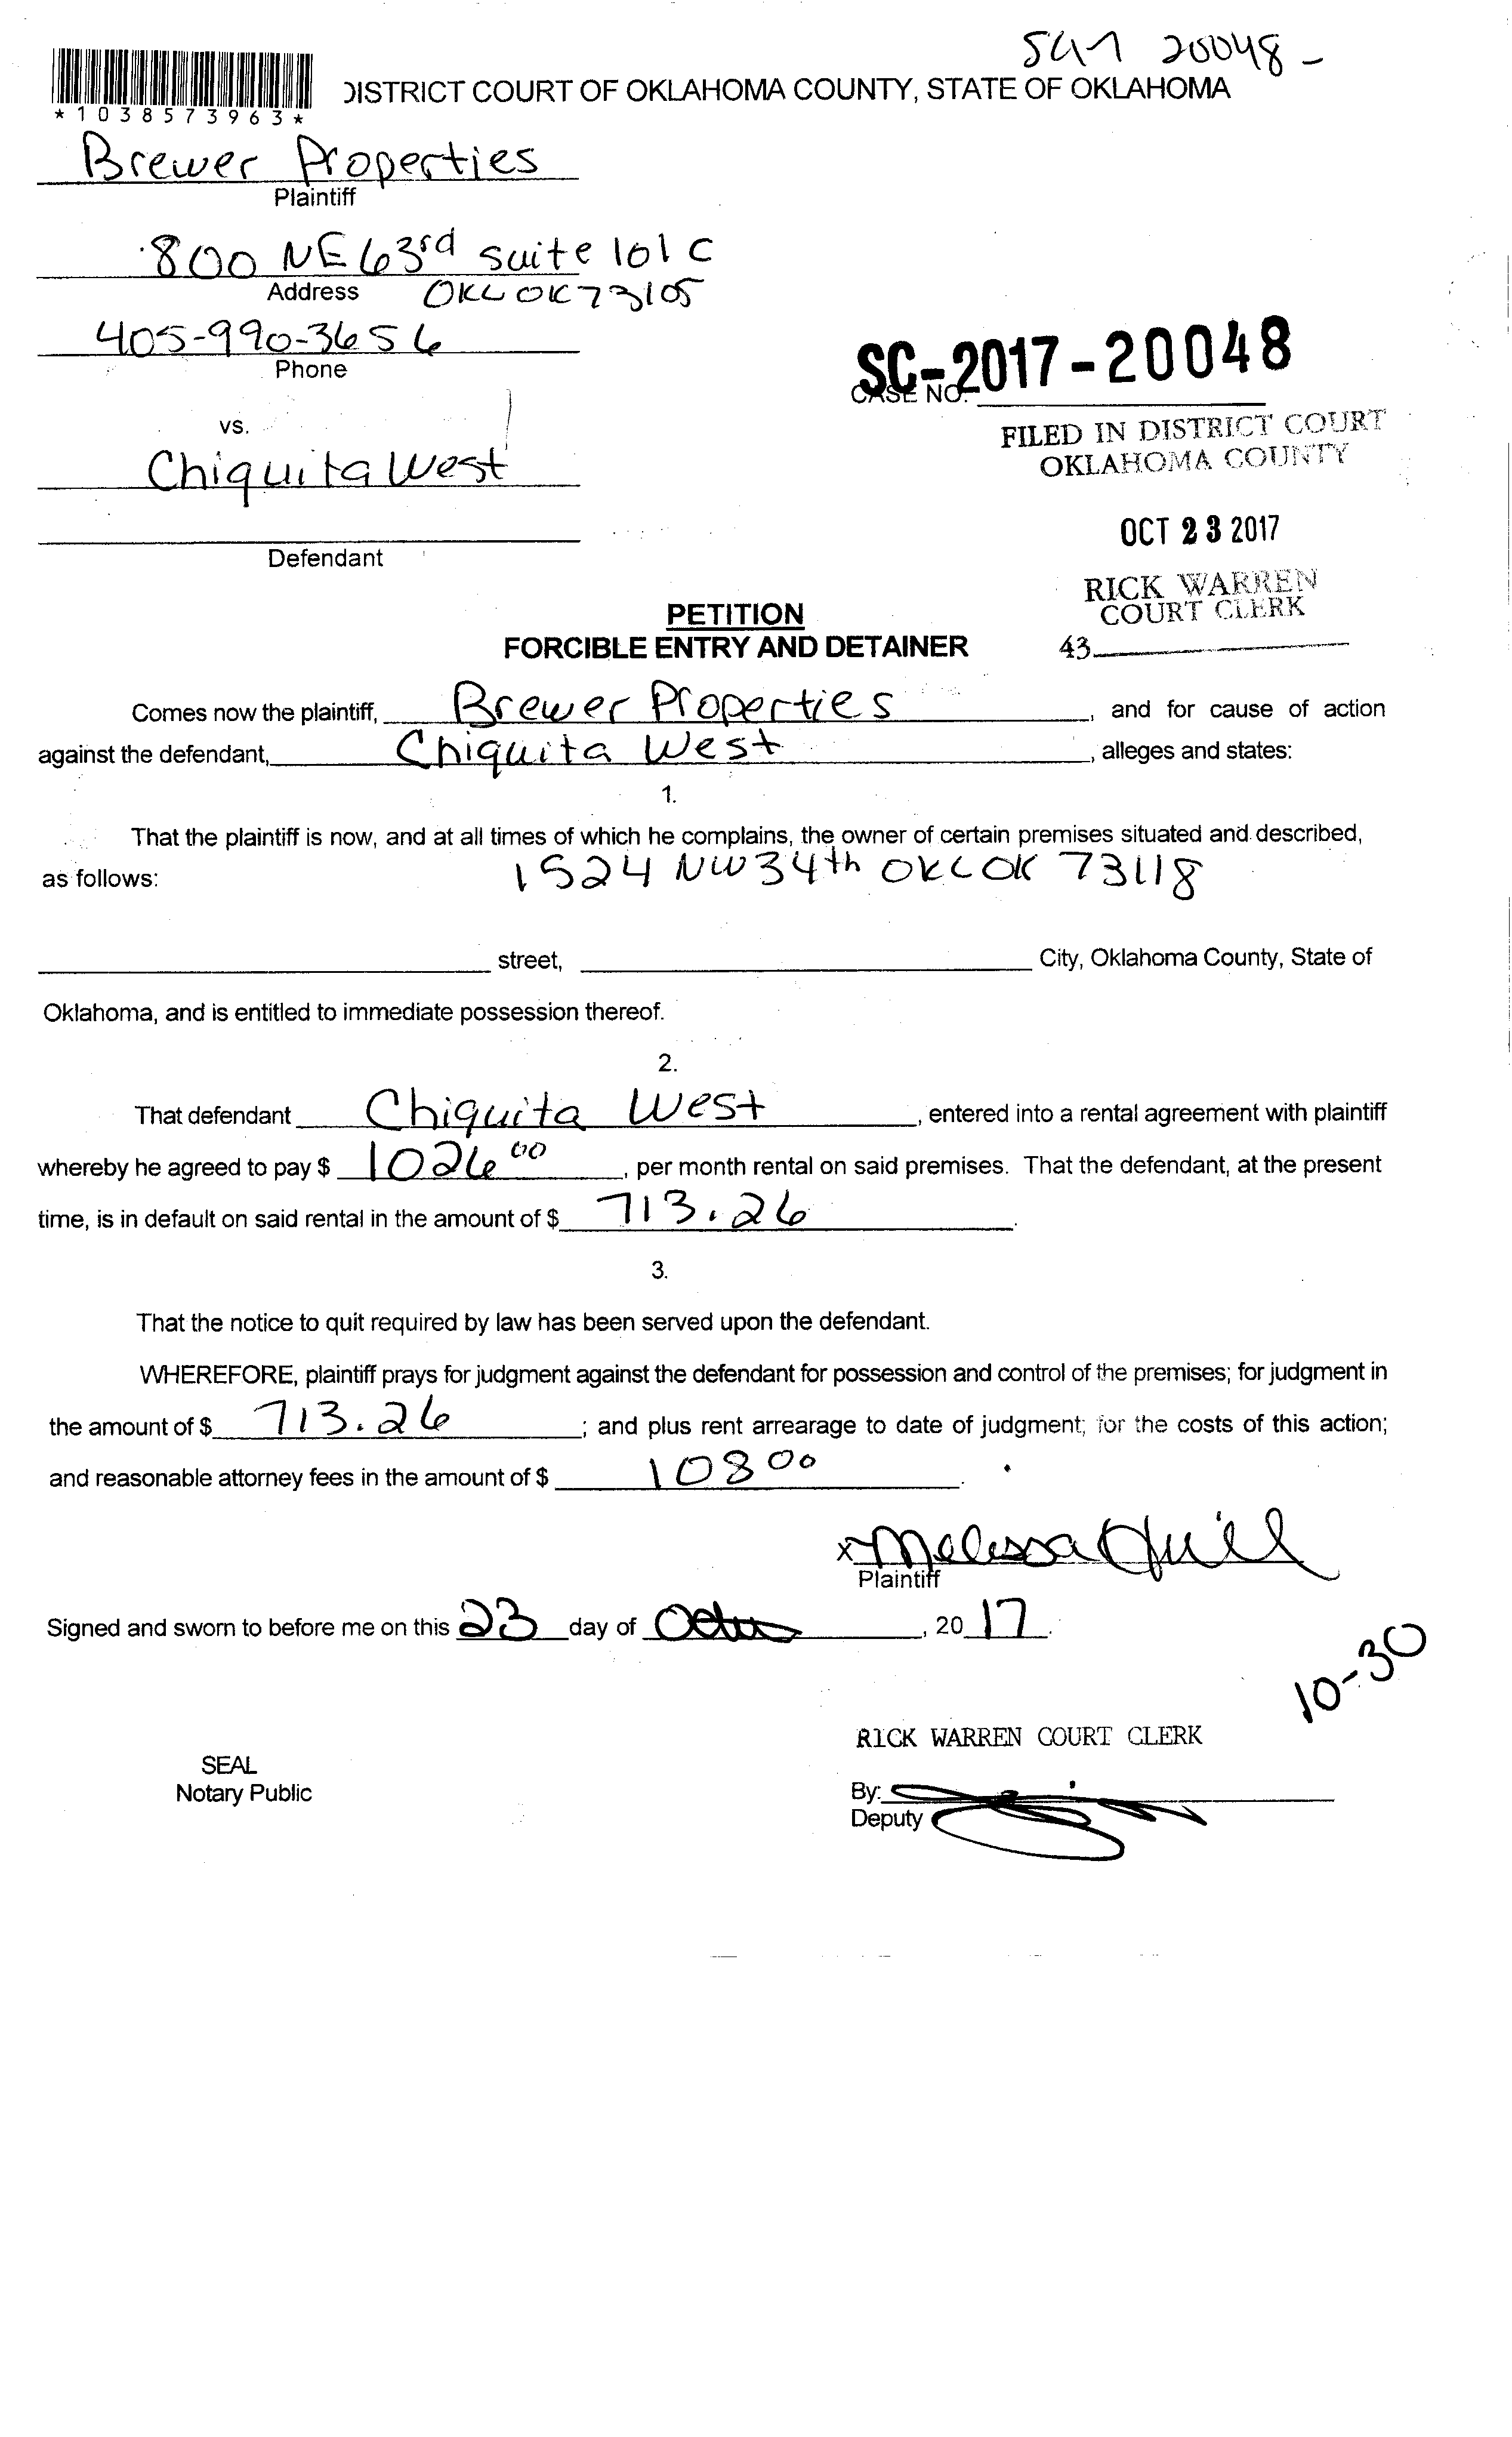 20048-
*1038573963*
DISTRICT COURT OF OKLAHOMA COUNTY, STATE OF OKLAHOMA
Brewer Properties
Plaintiff
800 NE 63rd suite 101 C
Address OKC OK 73105
405-990-3656
Phone
SC-2017-20048
CASE NO.
vs.
FILED IN DISTRICT COURT
OKLAHOMA COUNTY
Chiquita West
OCT 23 2017
Defendant
RICK WARREN
COURT CLERK
PETITION
FORCIBLE ENTRY AND DETAINER
43
Comes now the plaintiff, Brewer Properties, and for cause of action
against the defendant, Chiquita West, alleges and states:
1.
That the plaintiff is now, and at all times of which he complains, the owner of certain premises situated and described,
as follows: 1524 NW 34th OKC OK 73118
street, City, Oklahoma County, State of
Oklahoma, and is entitled to immediate possession thereof.
2.
That defendant Chiquita West, entered into a rental agreement with plaintiff
whereby he agreed to pay $ 1026 00, per month rental on said premises. That the defendant, at the present
time, is in default on said rental in the amount of $ 713.26.
3.
That the notice to quit required by law has been served upon the defendant.
WHEREFORE, plaintiff prays for judgment against the defendant for possession and control of the premises; for judgment in
the amount of $ 713.26; and plus rent arrearage to date of judgment; for the costs of this action;
and reasonable attorney fees in the amount of $ 108 00.
x Melissa
Plaintiff
Signed and sworn to before me on this 23 day of , 20 17.
10-30
RICK WARREN COURT CLERK
SEAL
Notary Public
By:
Deputy